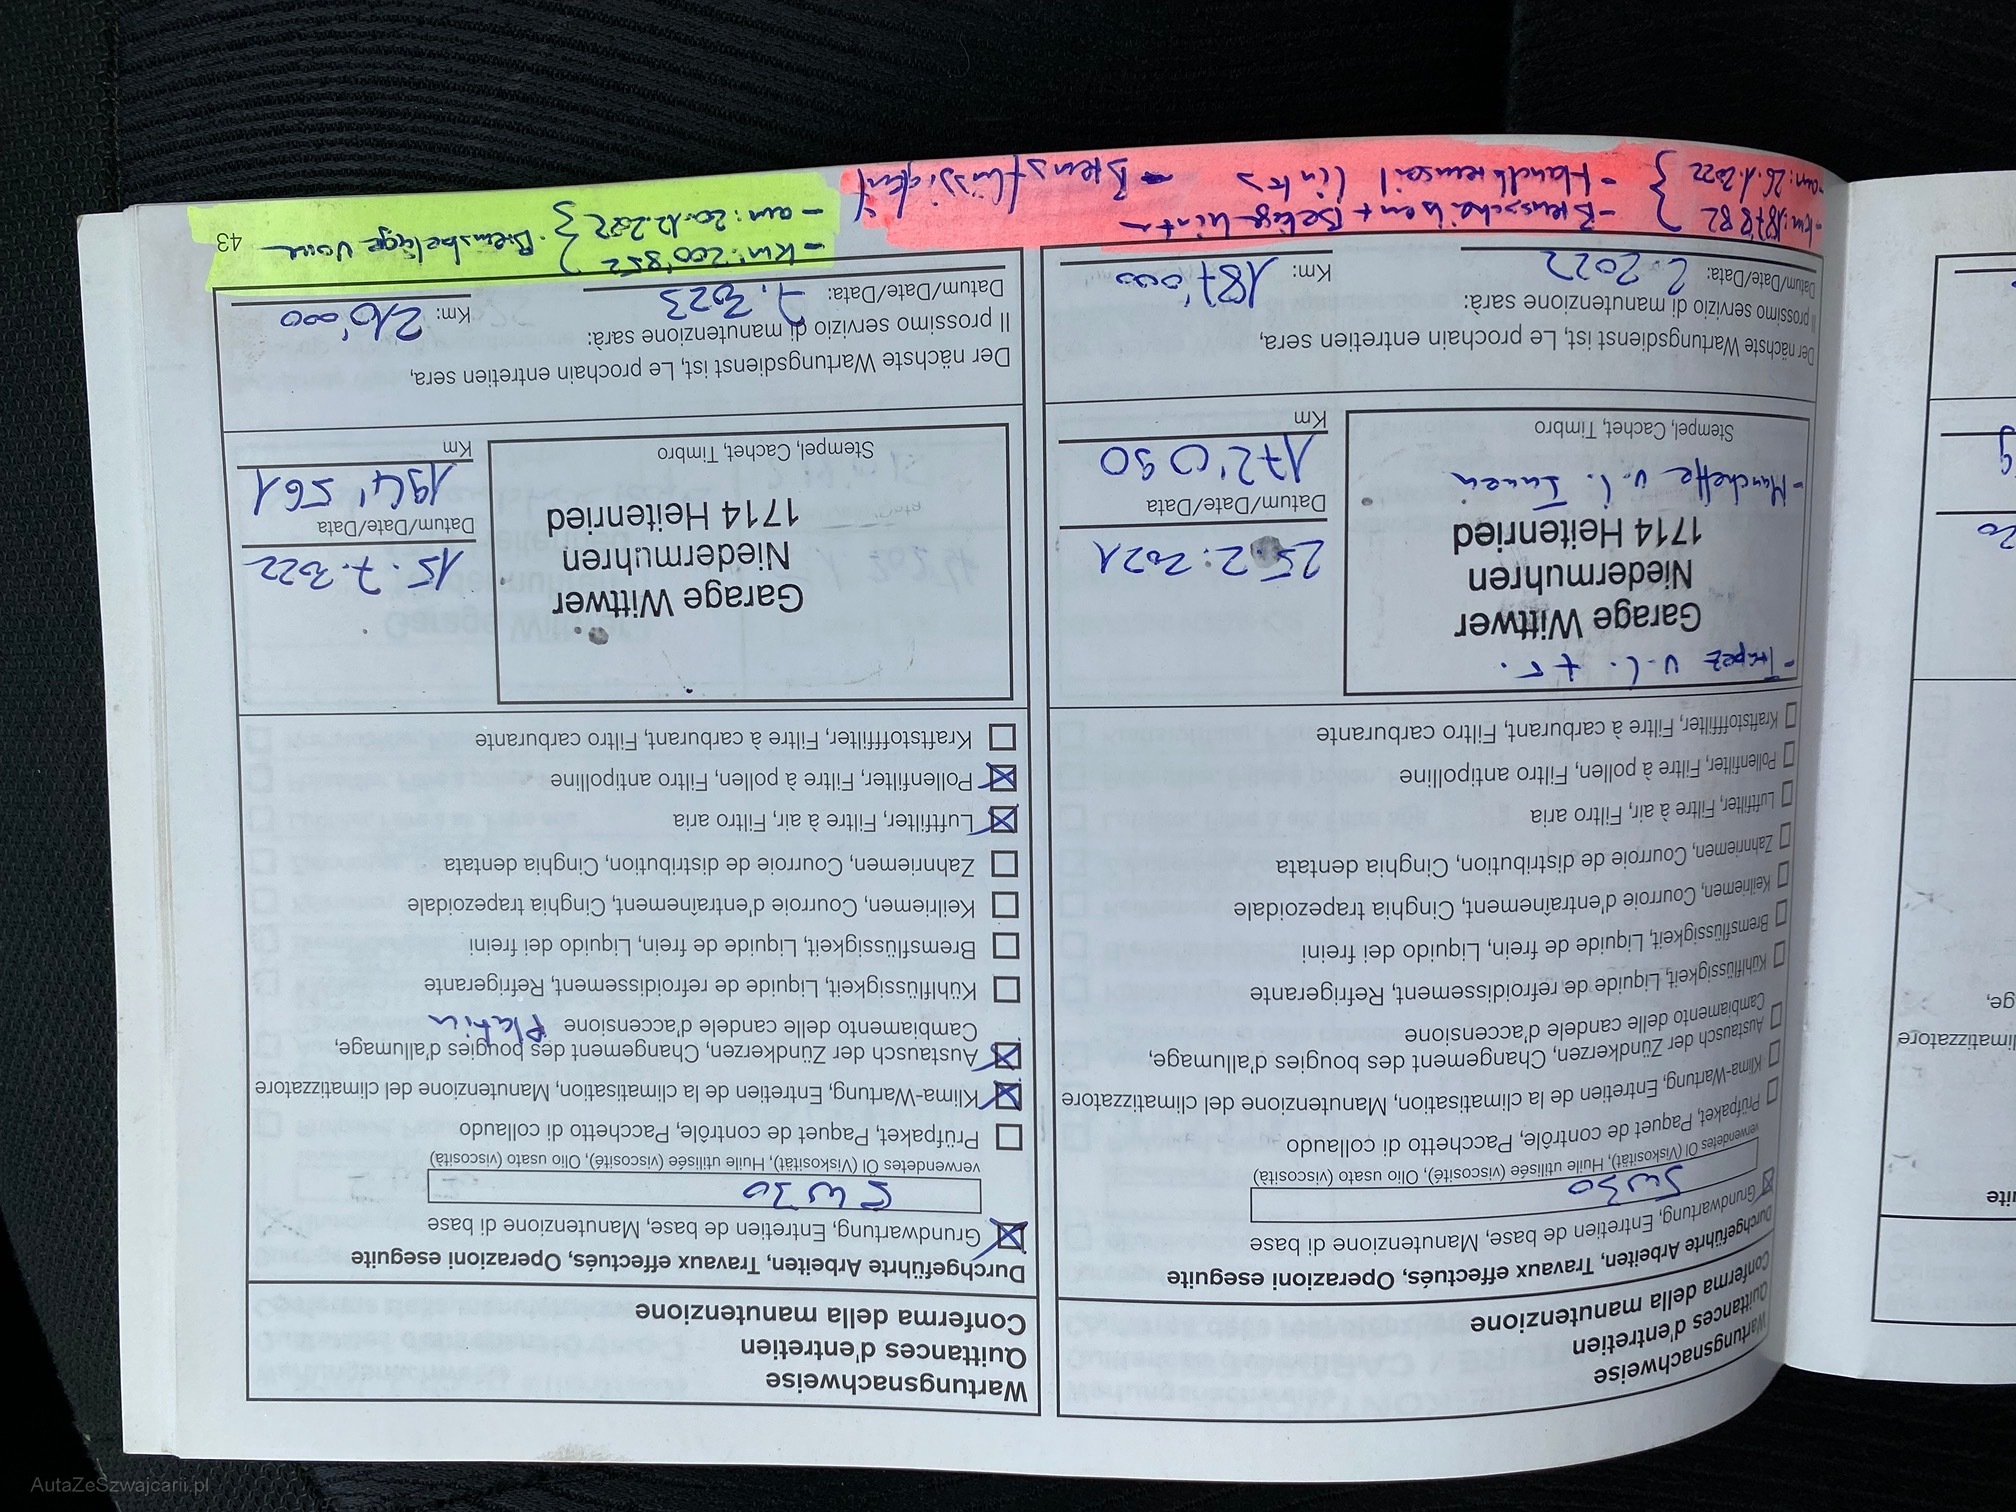 Wartungsnachweise
Quittances d'entretien
Conferma della manutenzione
Durchgeführte Arbeiten, Travaux effectués, Operazioni eseguite
Grundwartung, Entretien de base, Manutenzione di base
5W30
verwendetes Öl (Viskosität), Huile utilisée (viscosité), Olio usato (viscosità)
Prüfpaket, Paquet de contrôle, Pacchetto di collaudo
Klima-Wartung, Entretien de la climatisation, Manutenzione del climatizzatore
Austausch der Zündkerzen, Changement des bougies d'allumage,
Cambiamento delle candele d'accensione
Kühlflüssigkeit, Liquide de refroidissement, Refrigerante
Bremsflüssigkeit, Liquide de frein, Liquido dei freini
Keilriemen, Courroie d'entraînement, Cinghia trapezoidale
Zahnriemen, Courroie de distribution, Cinghia dentata
Luftfilter, Filtre à air, Filtro aria
Pollenfilter, Filtre à pollen, Filtro antipolline
Kraftstofffilter, Filtre à carburant, Filtro carburante
- Trapez v.l. + r.
Garage Wittwer
Niedermuhren
1714 Heitenried
- Manchette v.l. Innen
Stempel, Cachet, Timbro
25.2.2021
Datum/Date/Data
172'090
Km
Der nächste Wartungsdienst ist, Le prochain entretien sera,
Il prossimo servizio di manutenzione sarà:
Datum/Date/Data: 2.2022
Km: 187'000
- km: 187'882 } - Bremsscheiben + Beläge hinten
- am: 26.1.2022 } - Handbremsseil links - Bremsflüssigkeit
Wartungsnachweise
Quittances d'entretien
Conferma della manutenzione
Durchgeführte Arbeiten, Travaux effectués, Operazioni eseguite
Grundwartung, Entretien de base, Manutenzione di base
5W30
verwendetes Öl (Viskosität), Huile utilisée (viscosité), Olio usato (viscosità)
Prüfpaket, Paquet de contrôle, Pacchetto di collaudo
Klima-Wartung, Entretien de la climatisation, Manutenzione del climatizzatore
Austausch der Zündkerzen, Changement des bougies d'allumage,
Cambiamento delle candele d'accensione Platin
Kühlflüssigkeit, Liquide de refroidissement, Refrigerante
Bremsflüssigkeit, Liquide de frein, Liquido dei freini
Keilriemen, Courroie d'entraînement, Cinghia trapezoidale
Zahnriemen, Courroie de distribution, Cinghia dentata
Luftfilter, Filtre à air, Filtro aria
Pollenfilter, Filtre à pollen, Filtro antipolline
Kraftstofffilter, Filtre à carburant, Filtro carburante
Garage Wittwer
Niedermuhren
1714 Heitenried
Stempel, Cachet, Timbro
15.7.2022
Datum/Date/Data
194'561
Km
Der nächste Wartungsdienst ist, Le prochain entretien sera,
Il prossimo servizio di manutenzione sarà:
Datum/Date/Data: 7.2023
Km: 210'000
- Km: 200'852 } Bremsbeläge vorne
- am: 20.12.2022 }
43
AutaZeSzwajcarii.pl